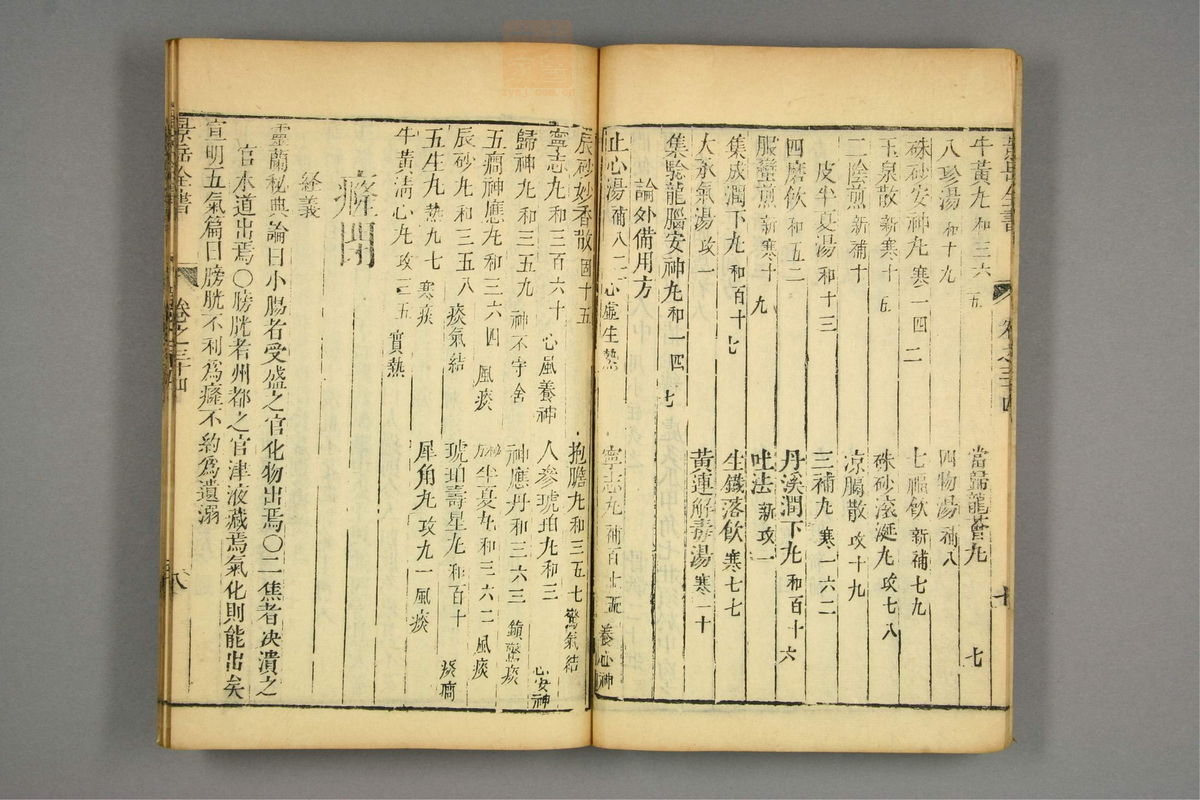 牛黃九和三六五 當歸龍薈九
八珍湯和十九 四物湯補八
硃砂安神九寒一四二 七福飲新補七九
玉泉散新寒十五 硃砂滾涎九攻七八
二陰煎新補十 凉膈散攻十九
皮半夏湯和十三 三補九寒一六二
四磨飲和五二 丹溪潤下九和百十六
服蠻煎新寒十九 吐法新攻一
集成潤下九和百十七 生鐵落飲寒七七
大承氣湯攻一 黃連解毒湯寒一十
集驗龍腦安神九和一四七
論外備用方
止心湯補八二 心虛生熱 寧志九補百十五 養心神
辰砂妙香散固十五 抱膽九和三五七 驚氣結
寧志九和三百六十 心風養神 人參琥珀九和三 心安神
歸神九和三五九 神不守舍 神應丹和三六三 鎮驚痰
五癇神應九和三六四 風痰 半夏九和三六二 風痰
辰砂九和三五八 痰氣結 琥珀壽星九和百十 痰癇
五生九熱九七 寒痰 犀角九攻九一 風痰
牛黃清心九攻 五 實熱
癃閉
経義
靈蘭秘典論曰小腸者受盛之官化物出焉〇三焦者決瀆之
官水道出焉〇膀胱者州都之官津液藏焉氣化則能出矣
宣明五氣篇曰膀胱不利為癃不約為遺溺
景岳全書 卷之三十四 八